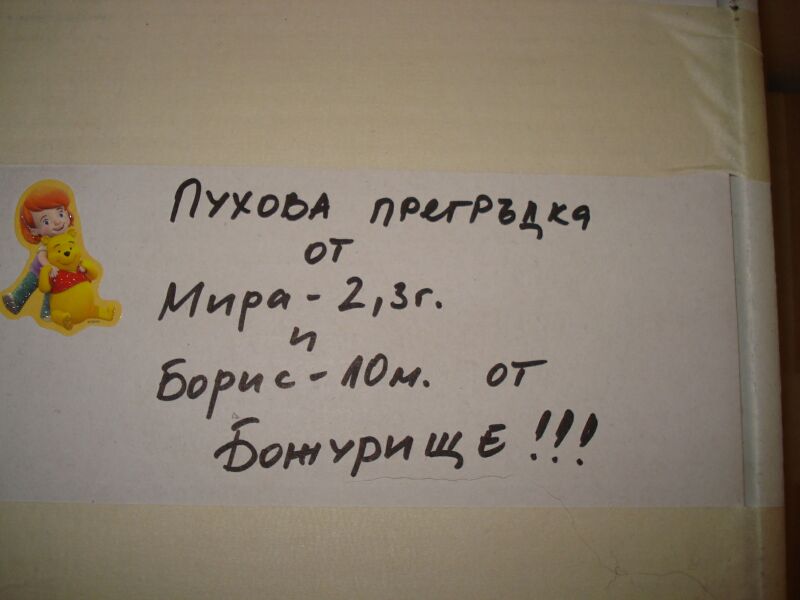 ПУХОВА ПРЕГРЪДКА
от
Мира - 2,3г.
и
Борис - 10м. от
Божурище!!!